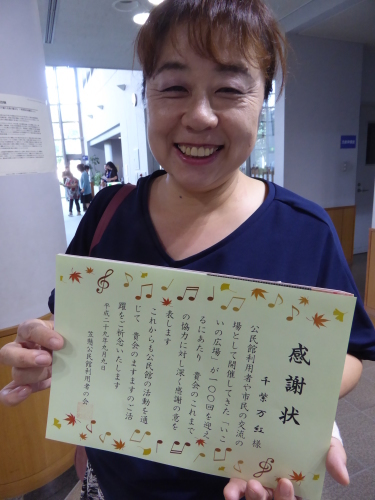 感謝状
千葉万紅様
公民館利用者や市民の交流の
場として開催してきた「いこ
いの広場」が一〇〇回を迎え
るにあたり 貴会のこれまで
の協力に対し深く感謝の意を
表します
これからも公民館の活動を通
じて 貴会のますますのご活
躍をご祈念いたします
平成二十九年九月九日
生穂公民館利用者の会